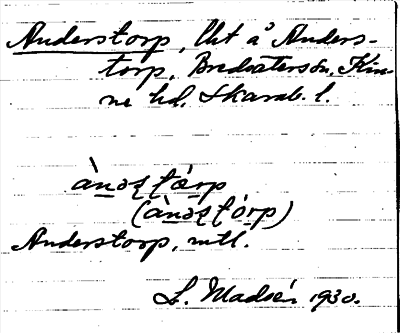 Anderstorp, lht å Anders-
torp, Bredsäters sn, Kin-
ne hd, Skarab. l.
ànəʂʈɷ́rp
(ànəʂʈórp)
Anderstorp, mtl.
L. Madsén 1930.